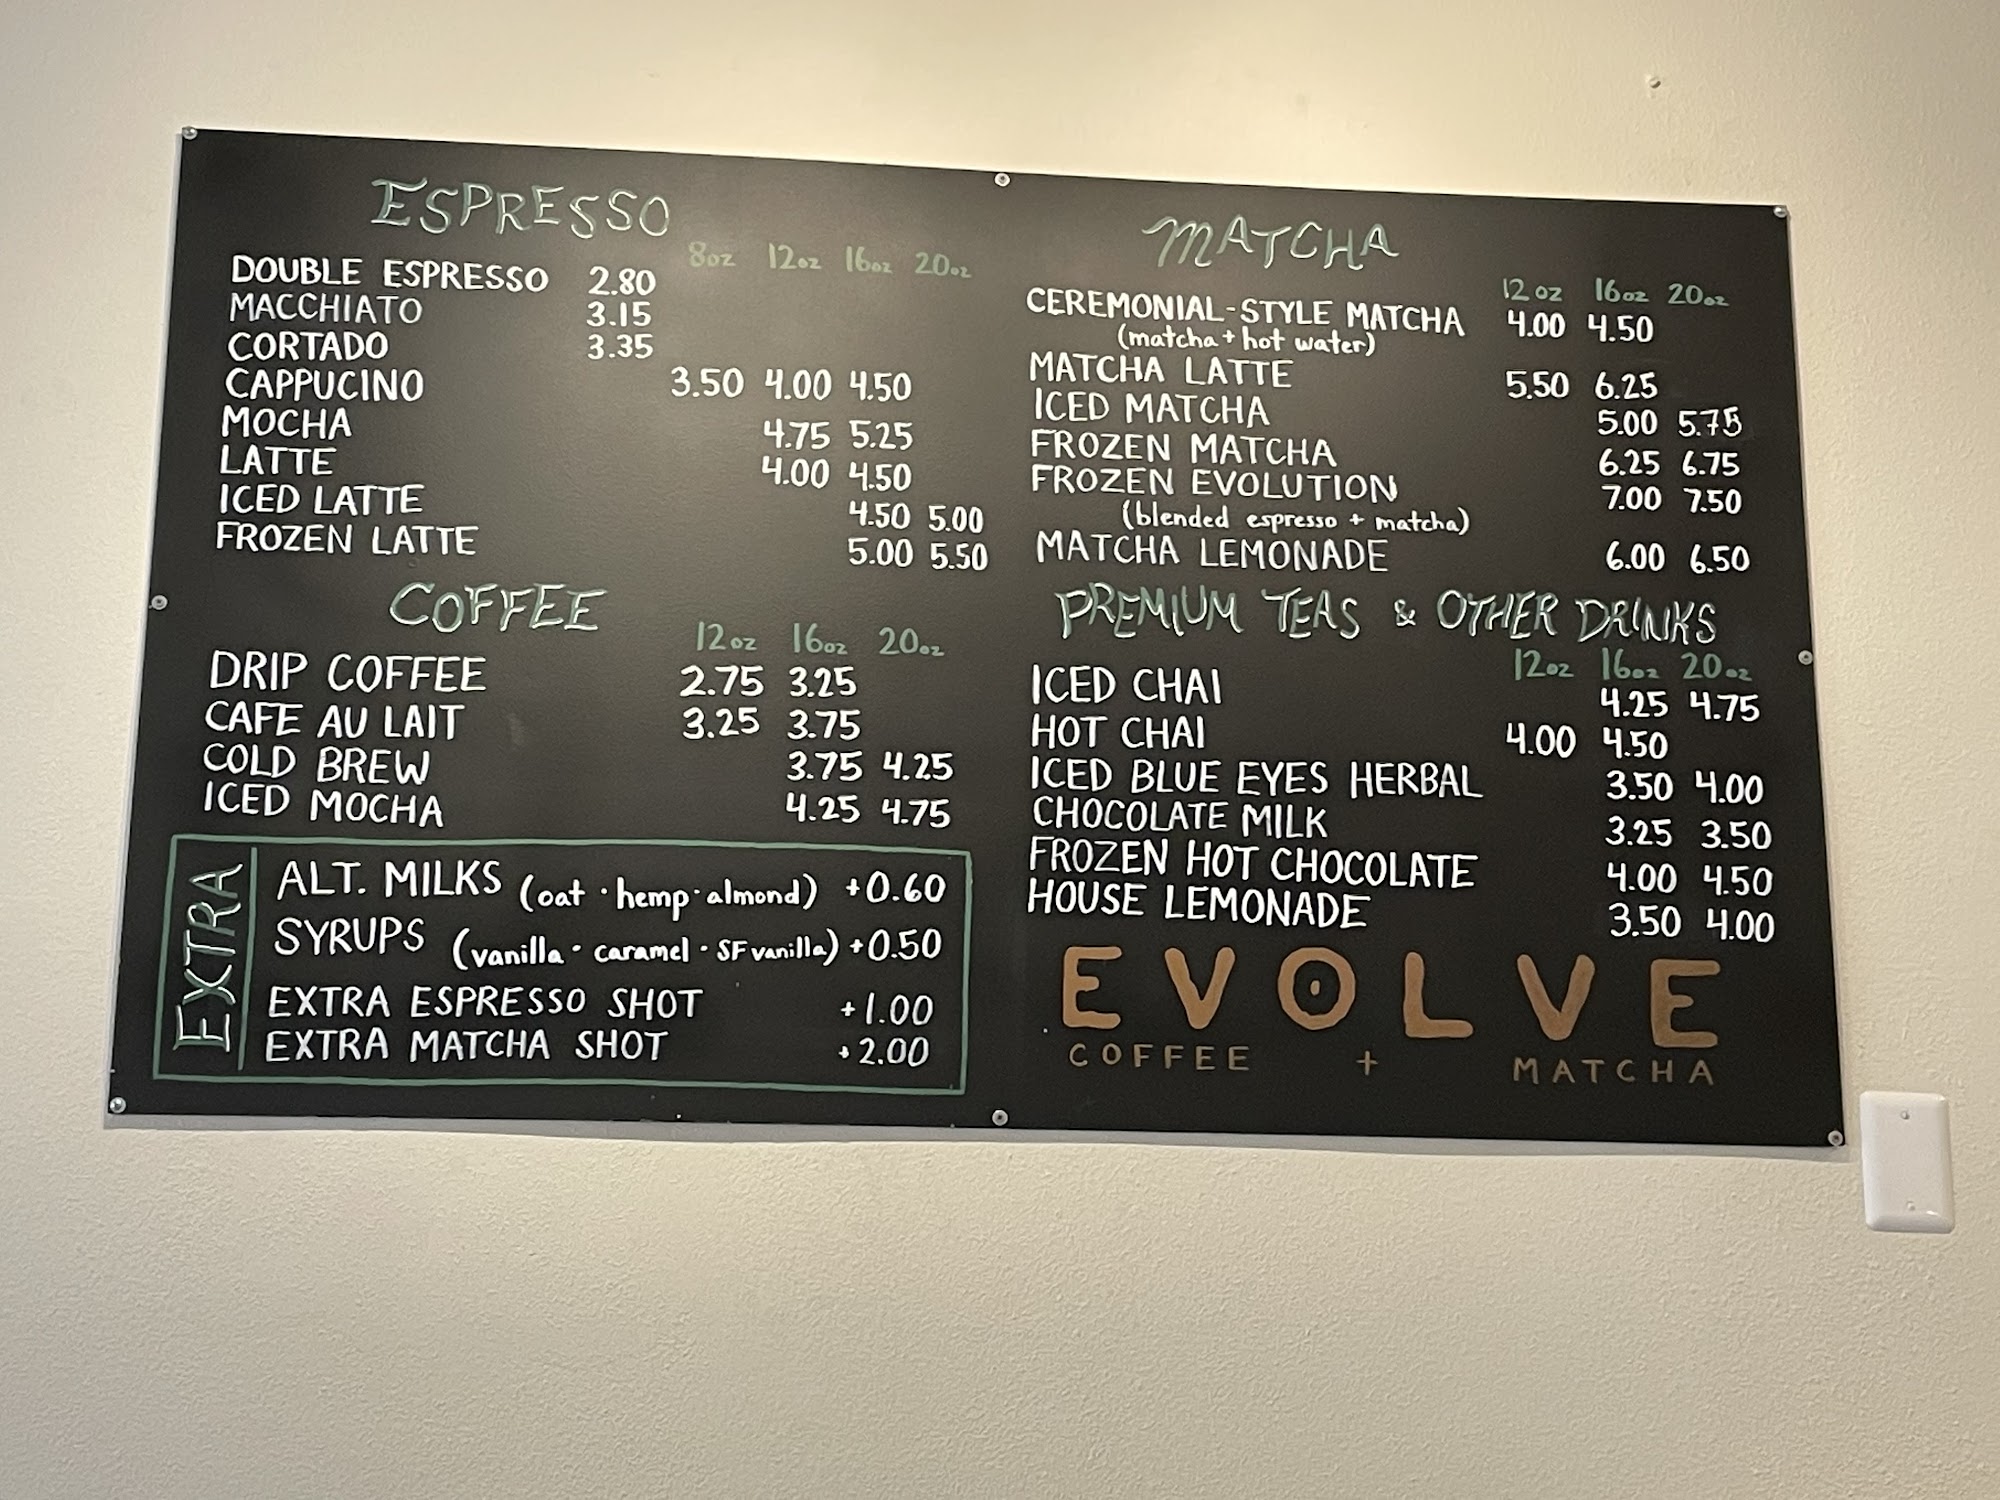 ESPRESSO
8oz 12oz 16oz 20oz
DOUBLE ESPRESSO 2.80
MACCHIATO 3.15
CORTADO 3.35
CAPPUCINO 3.50 4.00 4.50
MOCHA 4.75 5.25
LATTE 4.00 4.50
ICED LATTE 4.50 5.00
FROZEN LATTE 5.00 5.50
COFFEE
12oz 16oz 20oz
DRIP COFFEE 2.75 3.25
CAFE AU LAIT 3.25 3.75
COLD BREW 3.75 4.25
ICED MOCHA 4.25 4.75
EXTRA
ALT. MILKS (oat · hemp · almond) +0.60
SYRUPS (vanilla · caramel · SF vanilla) +0.50
EXTRA ESPRESSO SHOT +1.00
EXTRA MATCHA SHOT +2.00
MATCHA
12oz 16oz 20oz
CEREMONIAL-STYLE MATCHA 4.00 4.50
(matcha + hot water)
MATCHA LATTE 5.50 6.25
ICED MATCHA 5.00 5.75
FROZEN MATCHA 6.25 6.75
FROZEN EVOLUTION 7.00 7.50
(blended espresso + matcha)
MATCHA LEMONADE 6.00 6.50
PREMIUM TEAS & OTHER DRINKS
12oz 16oz 20oz
ICED CHAI 4.25 4.75
HOT CHAI 4.00 4.50
ICED BLUE EYES HERBAL 3.50 4.00
CHOCOLATE MILK 3.25 3.50
FROZEN HOT CHOCOLATE 4.00 4.50
HOUSE LEMONADE 3.50 4.00
EVOLVE
COFFEE + MATCHA